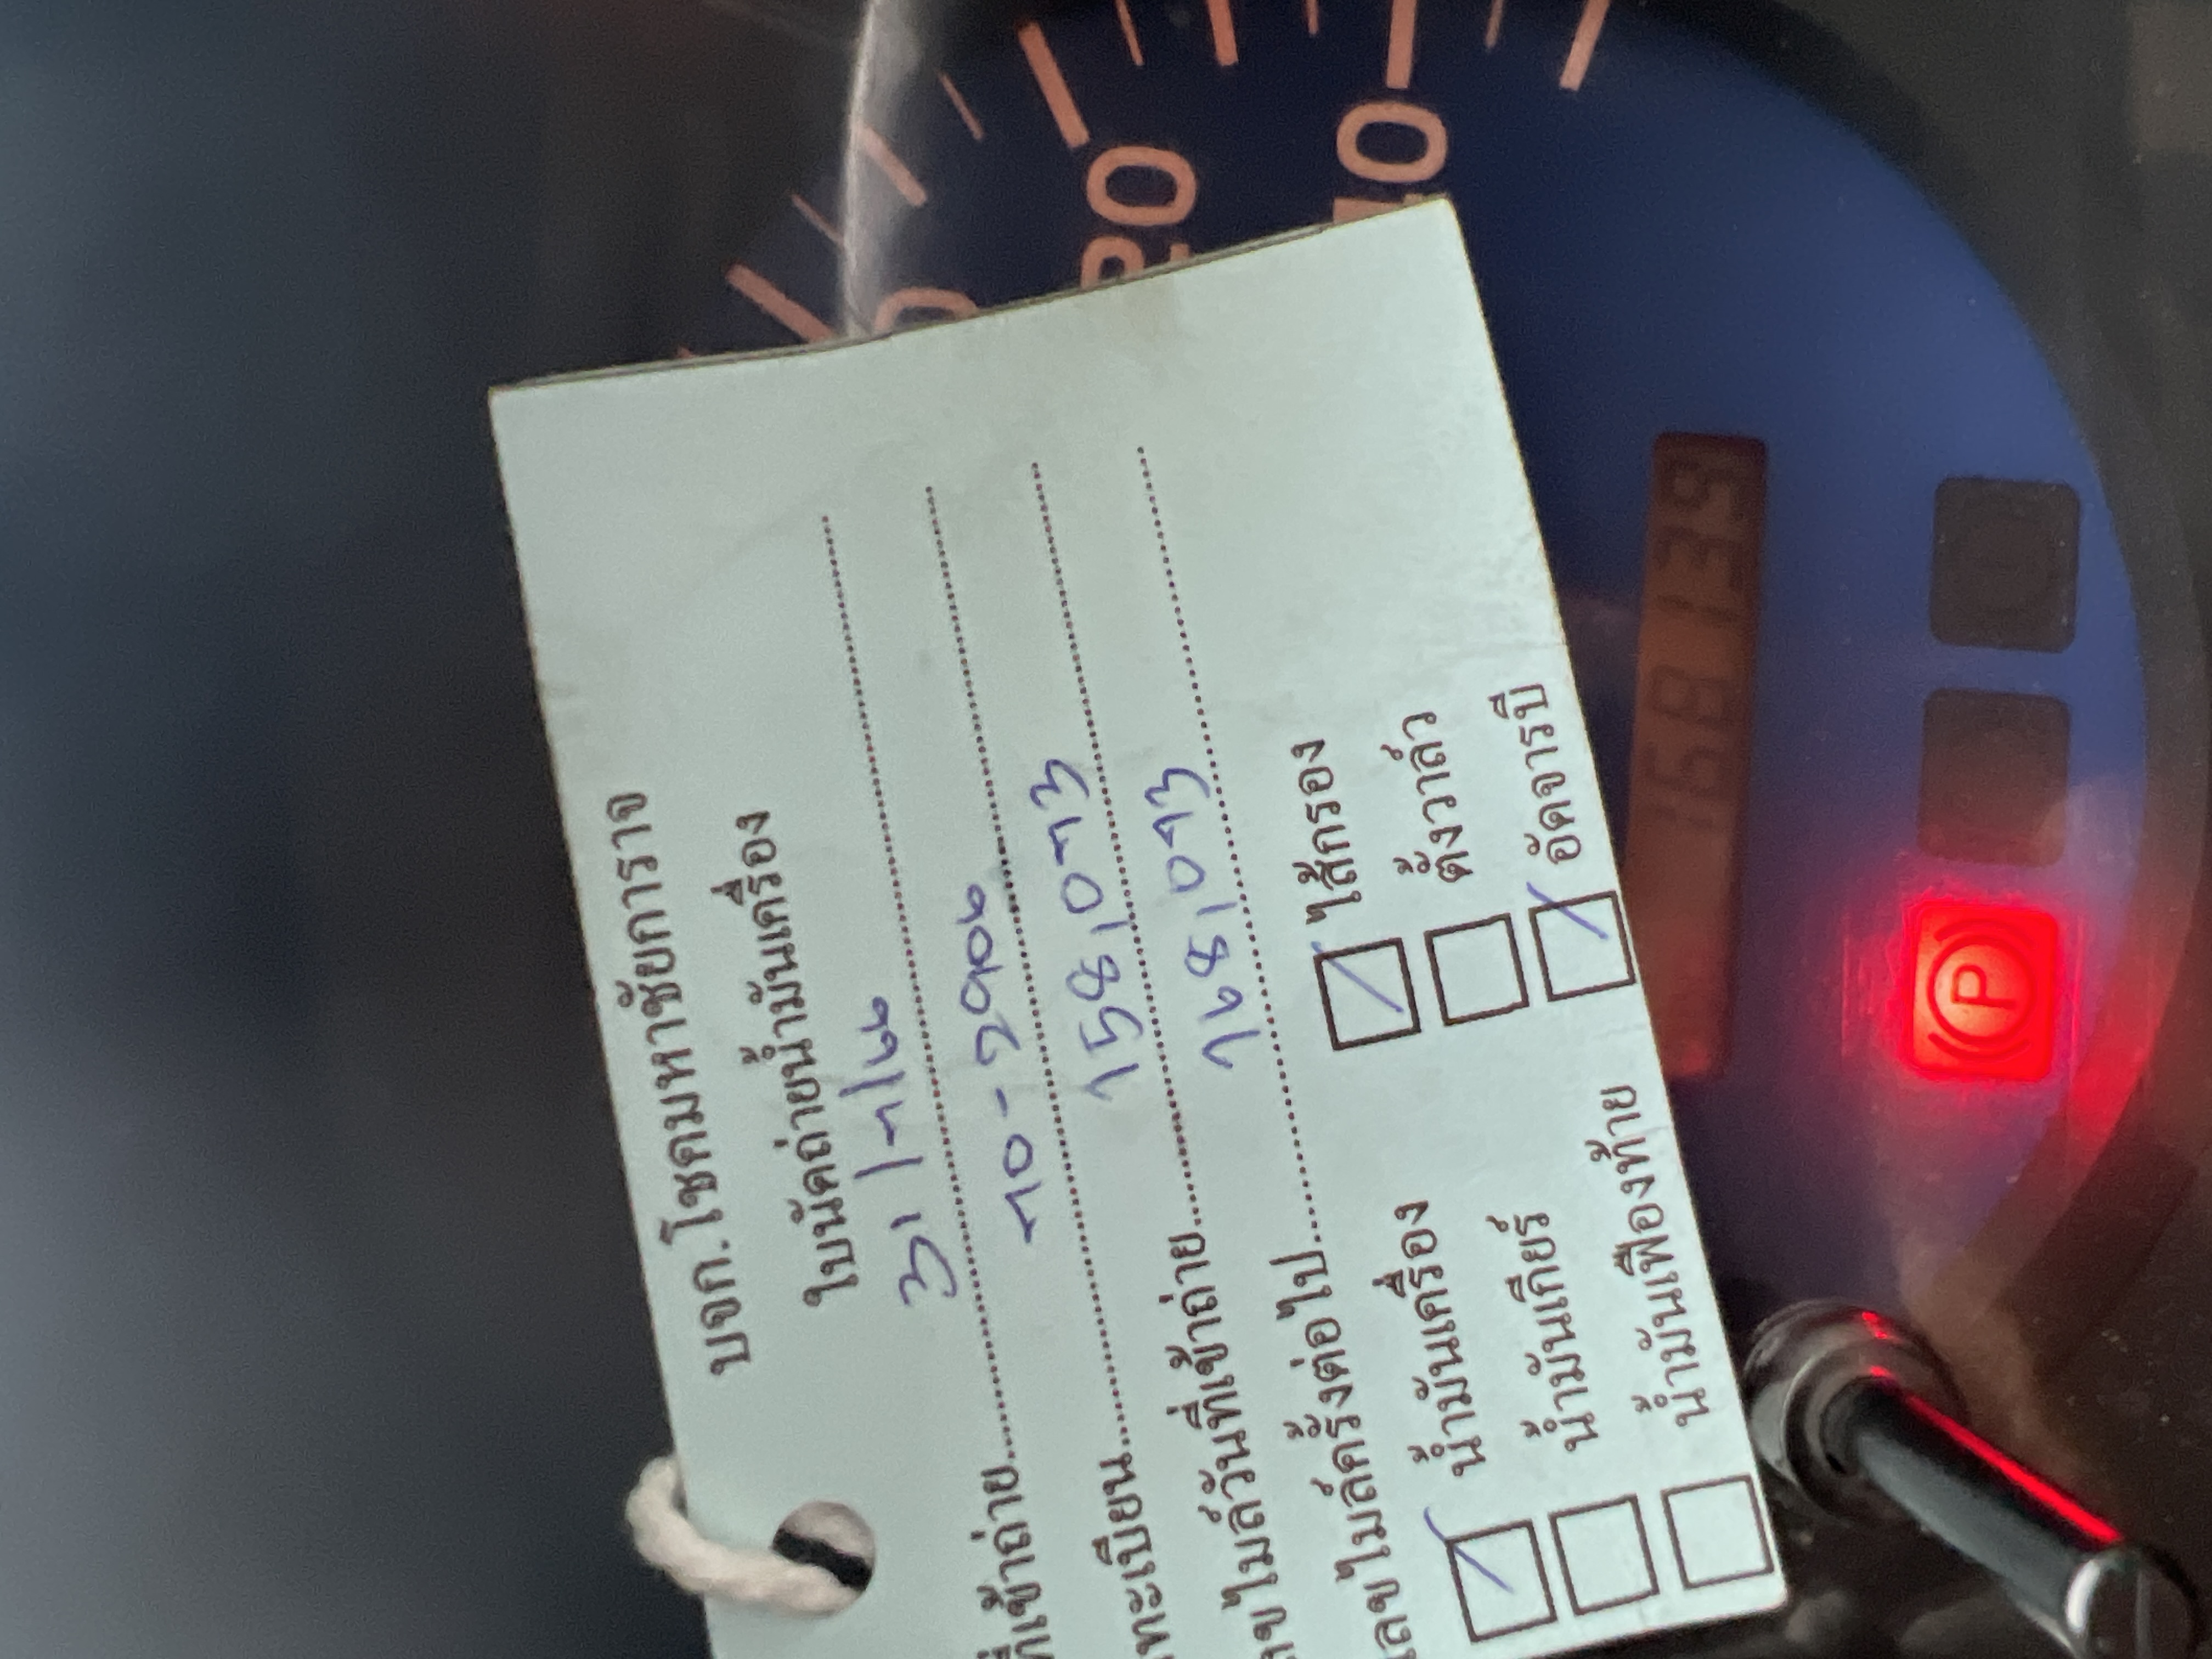 บจก.โชคมหาชัยการาจ
ใบนัดถ่ายน้ำมันเครื่อง
ที่เข้าถ่าย 31/7/66
ทะเบียน 70-2906
เลขไมล์วันที่เข้าถ่าย 158,073
เลขไมล์ครั้งต่อไป 168,073
น้ำมันเครื่อง ไส้กรอง
น้ำมันเกียร์ ตั้งวาล์ว
น้ำมันเฟืองท้าย อัดจารบี
20
168139
P